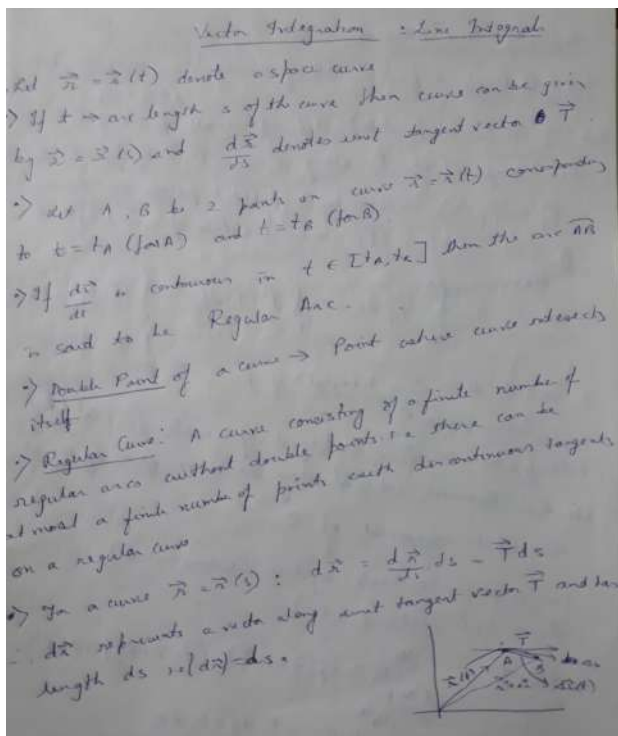 Vector Integration : Line Integral
Let r⃗ = r⃗(t) denote a space curve
·> If t → arc length s of the curve then curve can be given
by r⃗ = r⃗(s) and dr⃗/ds denotes unit tangent vector T⃗.
·> Let A, B be 2 points on curve r⃗ = r⃗(t) corresponding
to t = tA (for A) and t = tB (for B)
·> If dr⃗/dt is continuous in t ∈ [tA, tB] then the arc AB
is said to be Regular Arc.
·> Double Point of a curve → Point where curve intersects
itself
·> Regular Curve: A curve consisting of a finite number of
regular arcs without double points i.e there can be
at most a finite number of points with discontinuous tangents
on a regular curve
·> For a curve r⃗ = r⃗(s) : dr⃗ = dr⃗/ds ds = T⃗ds
∴ dr⃗ represents a vector along unit tangent vector T⃗ and has
length ds i.e |dr⃗| = ds.
T⃗
A
B